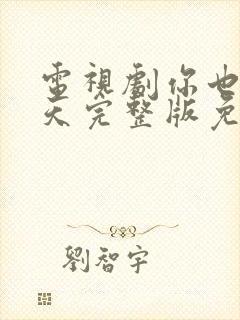 電視劇你也
天完整版免
劉智宇